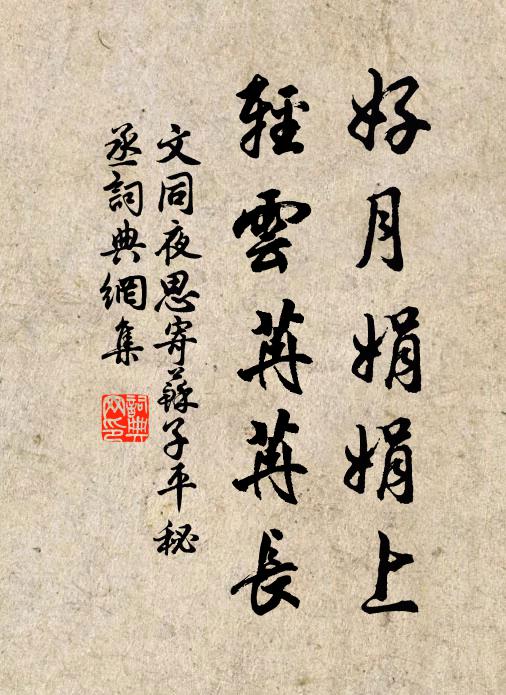 好月娟娟上
輕雲苒苒長
文同夜思寄蘇子平秘
丞詞典網集
詞典
网印